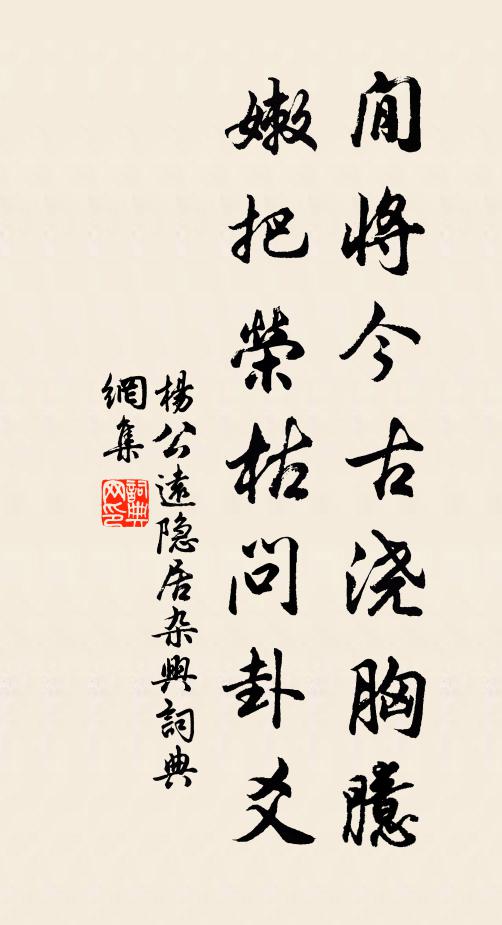 閒將今古浇胸臆
嫩把榮枯問卦爻
楊公遠隐居杂興詞典
網集
詞典網印